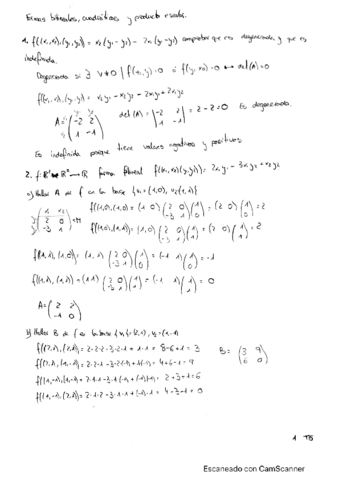 Formas bilineales, cuadráticas y producto escalar.
1. f((x₁,x₂),(y₁,y₂)) = x₂(y₁-y₂) - 2x₁(y₁-y₂) comprobar que es degenerada, y que es
indefinida.
Degenerada si ∃ v≠0 | f(x,y)=0 ó f(y,x)=0 ↔ det(A)=0
f(x₁,x₂),(y₁,y₂) = x₂y₁ - x₂y₂ - 2x₁y₁ + 2x₁y₂
A = (-2 2 / 1 -1) det(A) = |-2 2 / 1 -1| = 2-2=0 Es degenerada.
Es indefinida porque tiene valores negativos y positivos
2. f: R²×R² → R forma bilineal f((x₁,x₂)(y₁,y₂)) = 2x₁y₁ - 3x₁y₂ + x₂y₂
a) Hallar A de f en la base {u₁=(1,0), u₂(1,1)}
f((1,0),(1,0)) = (1 0)(2 0 / -3 1)(1 / 0) = (2 0)(1 / 0) = 2
(2 0 / -3 1) f((1,0),(1,1)) = (1 0)(2 0 / -3 1)(1 / 1) = (2 0)(1 / 1) = 2
f((1,1),(1,0)) = (1,1)(2 0 / -3 1)(1 / 0) = (-1 1)(1 / 0) = -1
f((1,1),(1,1)) = (1 1)(2 0 / -3 1)(1 / 1) = (-1 1)(1 / 1) = 0
A = (2 2 / -1 0)
b) Hallar B de f en la base {v₁=(2,1), v₂=(1,-1)}
f((2,1),(2,1)) = 2·2·2-3·2·1+1·1 = 8-6+1 = 3 B = (3 9 / 6 0)
f((2,1),(1,-1)) = 2·2·1-3·2·(-1)+1·(-1) = 4+6-1 = 9
f((1,-1),(1,-1)) = 2·1·1-3·1·(-1)+(-1)·(-1) = 2+3+1 = 6
f((1,-1),(2,1)) = 2·1·2-3·1·1+(-1)·1 = 4-3-1 = 0
1 TB
Escaneado con CamScanner